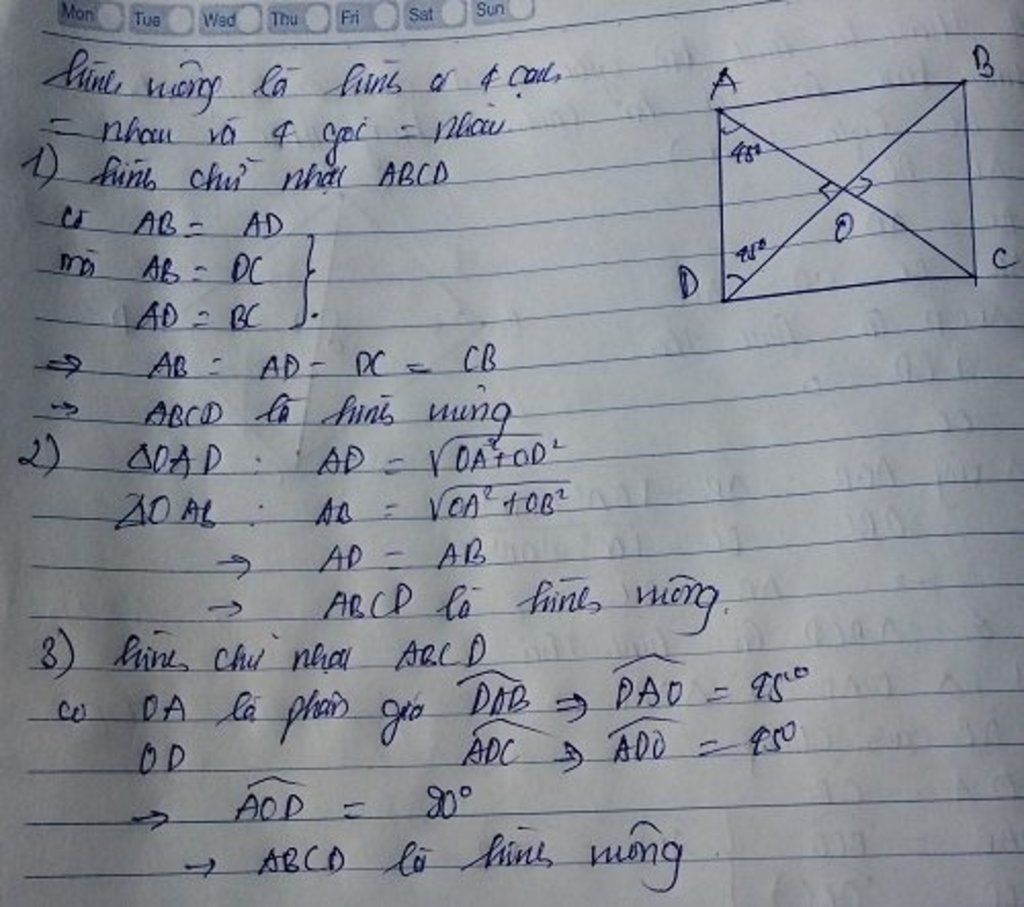 Mon Tue Wed Thu Fri Sat Sun
hình vuông là hình có 4 cạnh
= nhau và 4 góc = nhau
1) hình chữ nhật ABCD
có AB = AD
mà AB = DC
AD = BC
⇒ AB = AD = DC = CB
→ ABCD là hình vuông
2) ΔOAD : AD = √OA²+OD²
ΔOAB : AB = √OA²+OB²
→ AD = AB
→ ABCD là hình vuông.
3) hình chữ nhật ABCD
có OA là phân giác DAB ⇒ DAO = 45°
OD ADC ⇒ ADO = 45°
→ AOD = 90°
→ ABCD là hình vuông
A B
45°
O
45°
D C